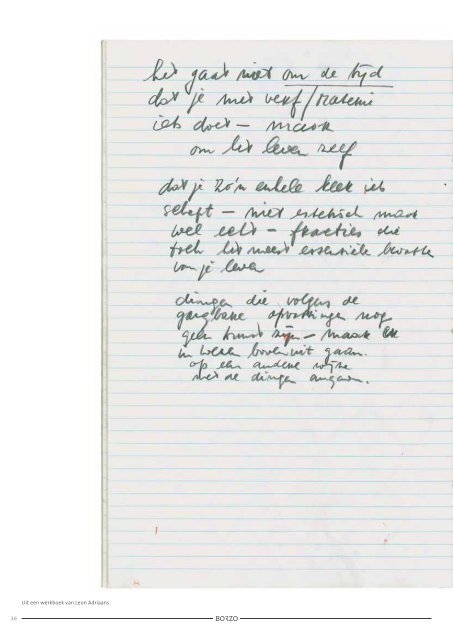 het gaat niet om de tijd
dat je met verf/materie
iets doet – maar
om het leven zelf
dat je zo'n enkele keer iets
schept – niet estetisch maar
wel echt – fracties die
toch het meest essentiele
van je leven
dingen die volgens de
gangbare opvattingen nog
geen kunst zijn – maar er
in wezen boven uit gaan.
op een andere wijze
met de dingen omgaan.
Uit een werkboek van Leon Adriaans
16
BORZO